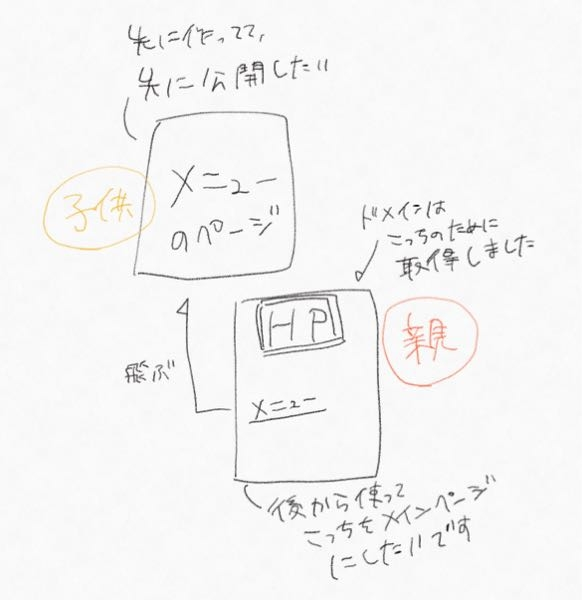 先に作ってて、
先に公開したい
メニュー
のページ
子供
ドメインは
こっちのために
取得しました
HP
親
飛ぶ
メニュー
後から使って
こっちをメインページ
にしたいです